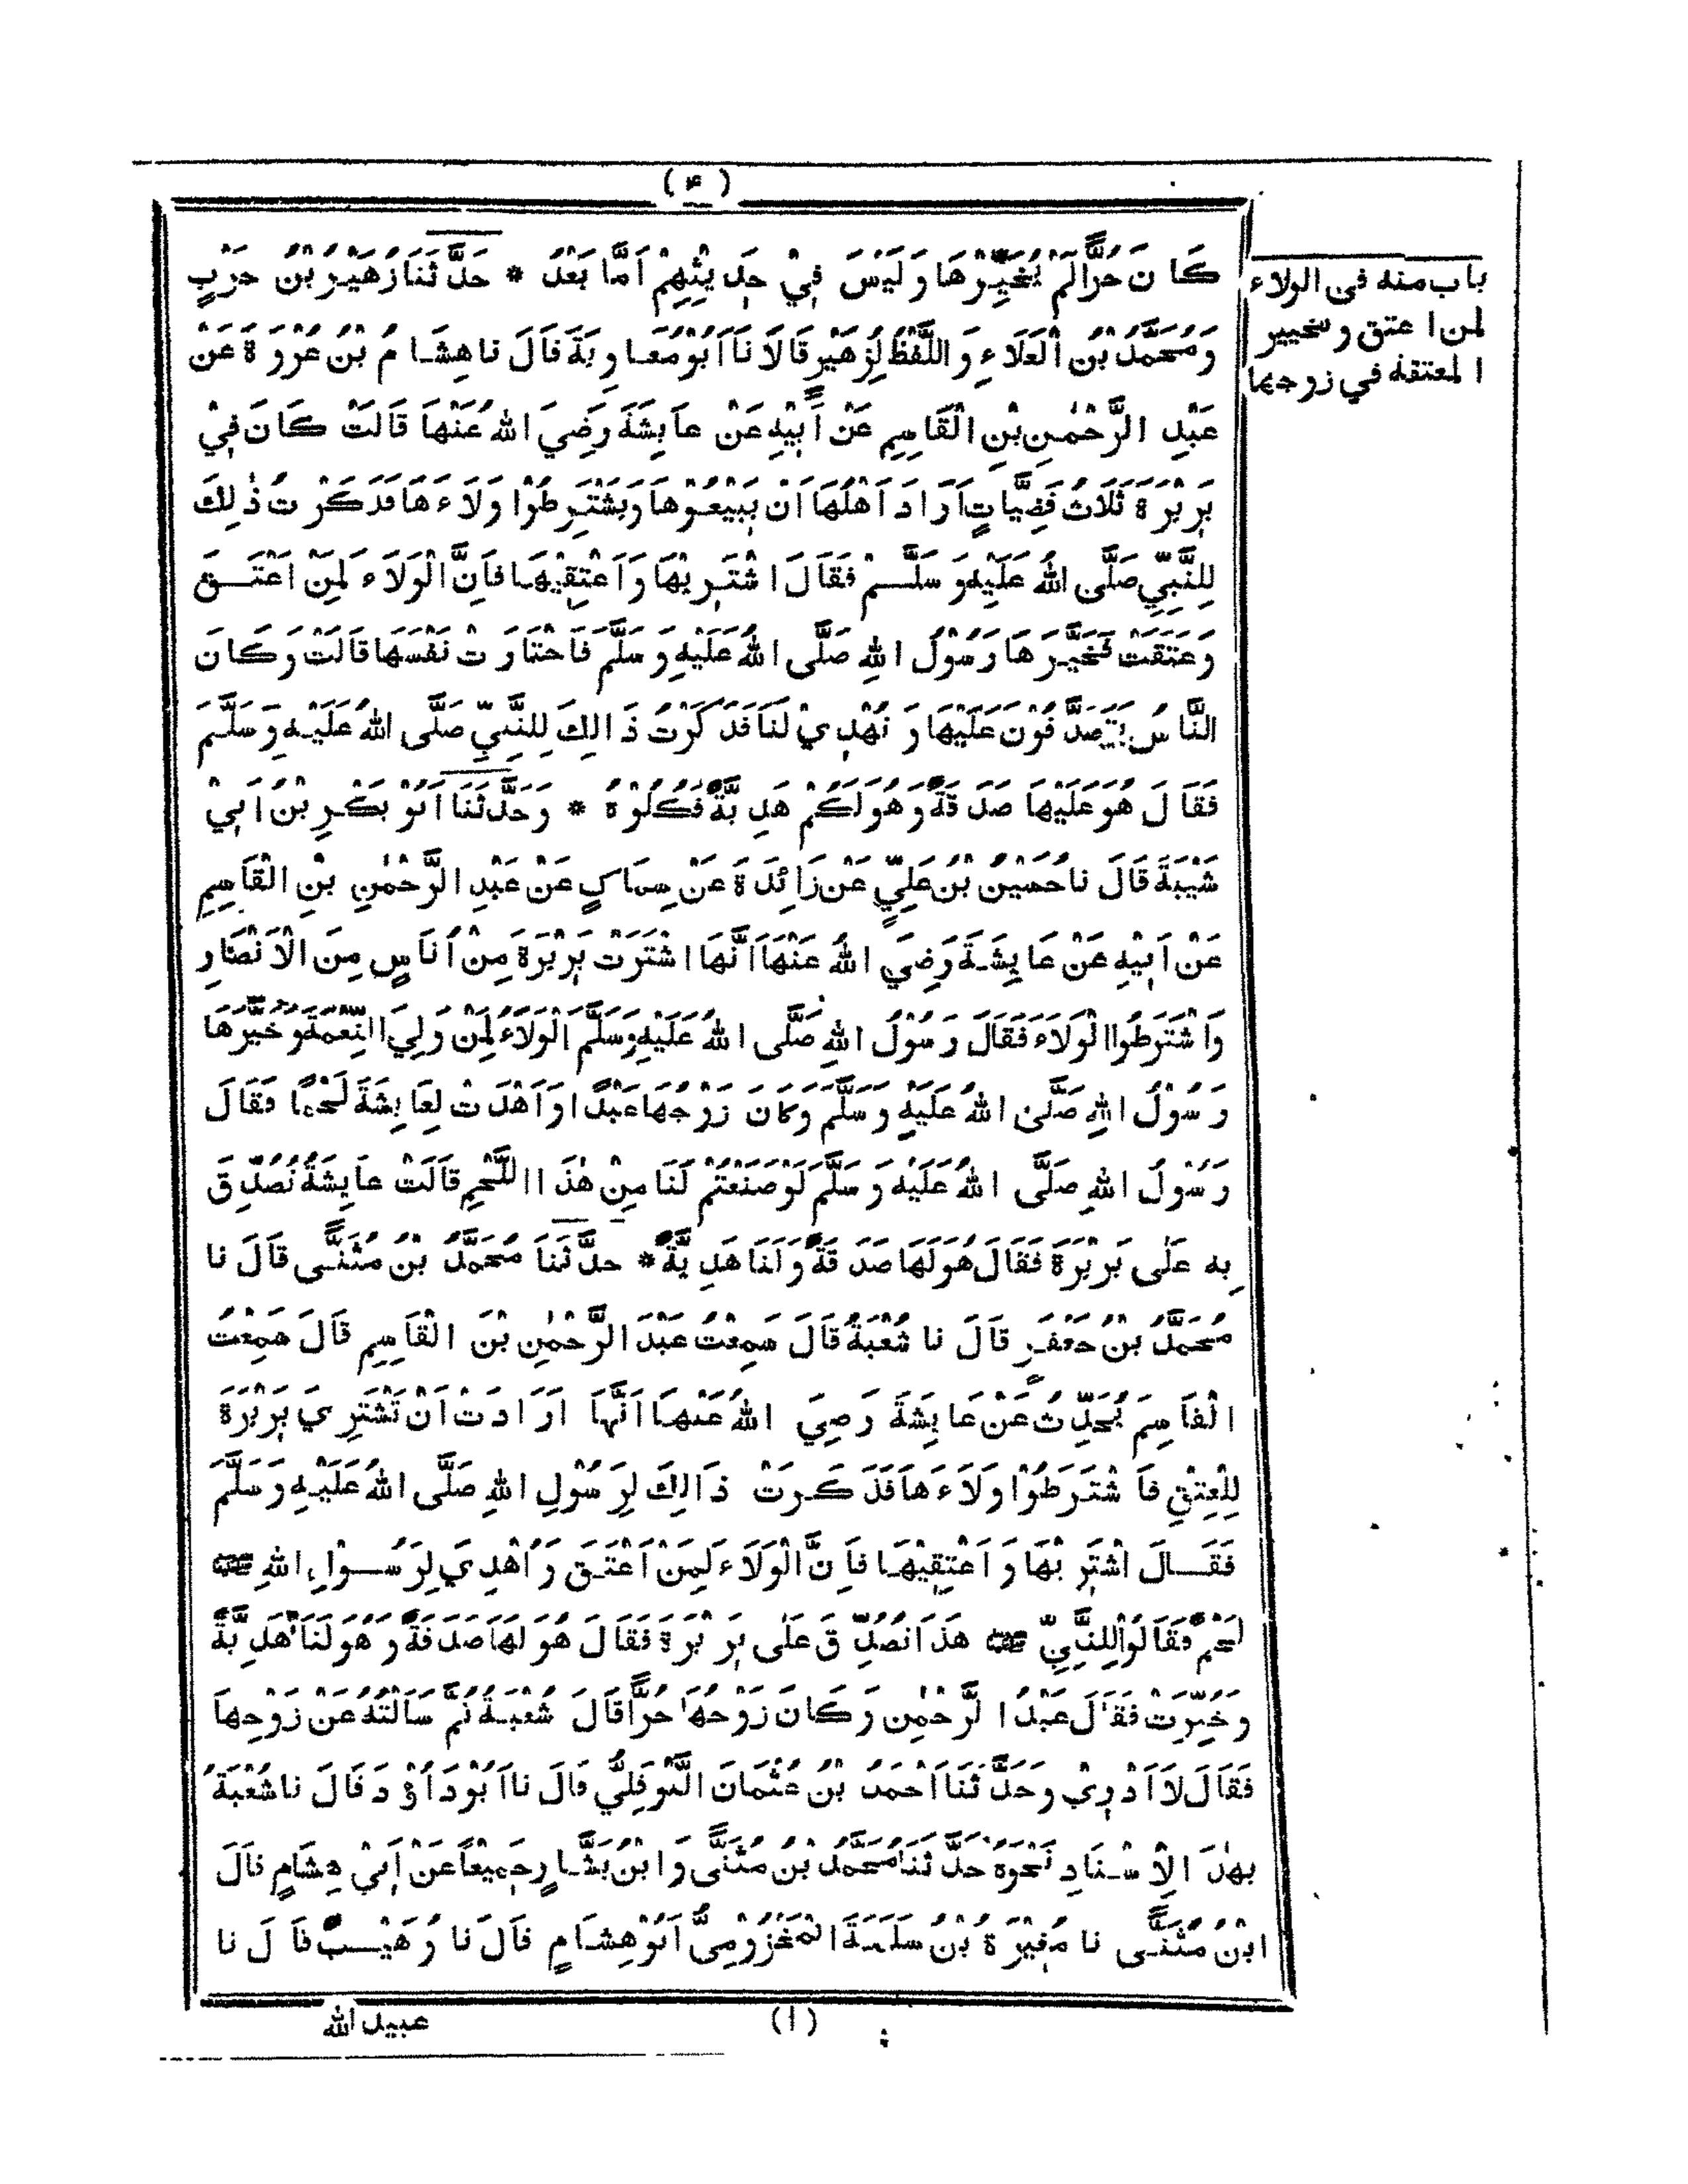 (۴)
باب منه فى الولاء
لمن اعتق وتخيير
المعتقة في زوجها
كَانَ حُرًّا لَمْ يُخَيِّرْهَا وَلَيْسَ فِيْ حَدِيْثِهِمْ اَمَّا بَعْدُ * حَدَّثَنَا زُهَيْرُ بْنُ حَرْبٍ
وَمُحَمَّدُ بْنُ الْعَلَاءِ وَاللَّفْظُ لِزُهَيْرٍ قَالَا نَا اَبُوْ مُعَاوِيَةَ قَالَ نا هِشَامُ بْنُ عُرْوَةَ عَنْ
عَبْدِ الرَّحْمٰنِ بْنِ الْقَاسِمِ عَنْ اَبِيْهِ عَنْ عَايِشَةَ رَضِيَ اللهُ عَنْهَا قَالَتْ كَانَ فِيْ
بَرِيْرَةَ ثَلَاثُ قَضِيَّاتٍ اَرَادَ اَهْلُهَا اَنْ يَبِيْعُوْهَا وَيَشْتَرِطُوْا وَلَاءَهَا فَذَكَرْتُ ذٰلِكَ
لِلنَّبِيِّ صَلَّى اللهُ عَلَيْهِ وَسَلَّمْ فَقَالَ اشْتَرِيْهَا وَاَعْتِقِيْهَا فَاِنَّ الْوَلَاءَ لِمَنْ اَعْتَقَ
وَعَتَقَتْ فَخَيَّرَهَا رَسُوْلُ اللهِ صَلَّى اللهُ عَلَيْهِ وَسَلَّمَ فَاخْتَارَتْ نَفْسَهَا قَالَتْ وَكَانَ
النَّاسُ يَتَصَدَّقُوْنَ عَلَيْهَا وَتُهْدِيْ لَنَا فَذَكَرْتُ ذَالِكَ لِلنَّبِيِّ صَلَّى اللهُ عَلَيْهِ وَسَلَّمَ
فَقَالَ هُوَ عَلَيْهَا صَدَقَةٌ وَهُوَ لَكُمْ هَدِيَّةٌ فَكُلُوْهُ * وَحَدَّثَنَا اَبُوْ بَكْرِ بْنُ اَبِيْ
شَيْبَةَ قَالَ نا حُسَيْنُ بْنُ عَلِيٍّ عَنْ زَائِدَةَ عَنْ سِمَاكٍ عَنْ عَبْدِ الرَّحْمٰنِ بْنِ الْقَاسِمِ
عَنْ اَبِيْهِ عَنْ عَايِشَةَ رَضِيَ اللهُ عَنْهَا اَنَّهَا اشْتَرَتْ بَرِيْرَةَ مِنْ اُنَاسٍ مِنَ الْاَنْصَارِ
وَاشْتَرَطُوا الْوَلَاءَ فَقَالَ رَسُوْلُ اللهِ صَلَّى اللهُ عَلَيْهِ وَسَلَّمَ الْوَلَاءُ لِمَنْ وَلِيَ النِّعْمَةَ وَخَيَّرَهَا
رَسُوْلُ اللهِ صَلَّى اللهُ عَلَيْهِ وَسَلَّمَ وَكَانَ زَوْجُهَا عَبْدًا وَاَهْدَتْ لِعَايِشَةَ لَحْمًا فَقَالَ
رَسُوْلُ اللهِ صَلَّى اللهُ عَلَيْهِ وَسَلَّمَ لَوْ صَنَعْتُمْ لَنَا مِنْ هٰذَا اللَّحْمِ قَالَتْ عَايِشَةُ تُصُدِّقَ
بِهِ عَلٰى بَرِيْرَةَ فَقَالَ هُوَ لَهَا صَدَقَةٌ وَلَنَا هَدِيَّةٌ * حَدَّثَنَا مُحَمَّدُ بْنُ مُثَنًّى قَالَ نا
مُحَمَّدُ بْنُ جَعْفَرٍ قَالَ نا شُعْبَةُ قَالَ سَمِعْتُ عَبْدَ الرَّحْمٰنِ بْنَ الْقَاسِمِ قَالَ سَمِعْتُ
الْقَاسِمَ يُحَدِّثُ عَنْ عَايِشَةَ رَضِيَ اللهُ عَنْهَا اَنَّهَا اَرَادَتْ اَنْ تَشْتَرِيَ بَرِيْرَةَ
لِلْعِتْقِ فَاشْتَرَطُوْا وَلَاءَهَا فَذَكَرَتْ ذَالِكَ لِرَسُوْلِ اللهِ صَلَّى اللهُ عَلَيْهِ وَسَلَّمَ
فَقَالَ اشْتَرِيْهَا وَاَعْتِقِيْهَا فَاِنَّ الْوَلَاءَ لِمَنْ اَعْتَقَ وَاُهْدِيَ لِرَسُوْلِ اللهِ ﷺ
لَحْمٌ فَقَالُوْا لِلنَّبِيِّ ﷺ هَذَا تُصُدِّقَ عَلٰى بَرِيْرَةَ فَقَالَ هُوَ لَهَا صَدَقَةٌ وَهُوَ لَنَا هَدِيَّةٌ
وَخُيِّرَتْ فَقَالَ عَبْدُ الرَّحْمٰنِ وَكَانَ زَوْجُهَا حُرًّا قَالَ شُعْبَةُ ثُمَّ سَاَلْتُهُ عَنْ زَوْجِهَا
فَقَالَ لَا اَدْرِيْ وَحَدَّثَنَا اَحْمَدُ بْنُ عُثْمَانَ النَّوْفَلِيُّ قَالَ نا اَبُوْ دَاوُدَ قَالَ نا شُعْبَةُ
بِهٰذَا الْاِسْنَادِ نَحْوَهُ حَدَّثَنَا مُحَمَّدُ بْنُ مُثَنًّى وَابْنُ بَشَّارٍ جَمِيْعًا عَنْ اَبِيْ هِشَامٍ قَالَ
ابْنُ مُثَنًّى نا مُغِيْرَةُ بْنُ سَلَمَةَ الْمَخْزُوْمِيُّ اَبُوْ هِشَامٍ قَالَ نَا وُهَيْبٌ قَالَ نا
(۱)
عبيد الله